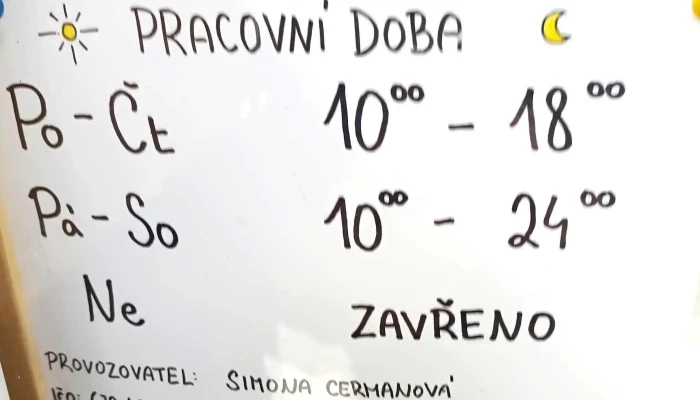 PRACOVNÍ DOBA
Po - Čt 10⁰⁰ - 18⁰⁰
Pá - So 10⁰⁰ - 24⁰⁰
Ne ZAVŘENO
PROVOZOVATEL: SIMONA CERMANOVÁ